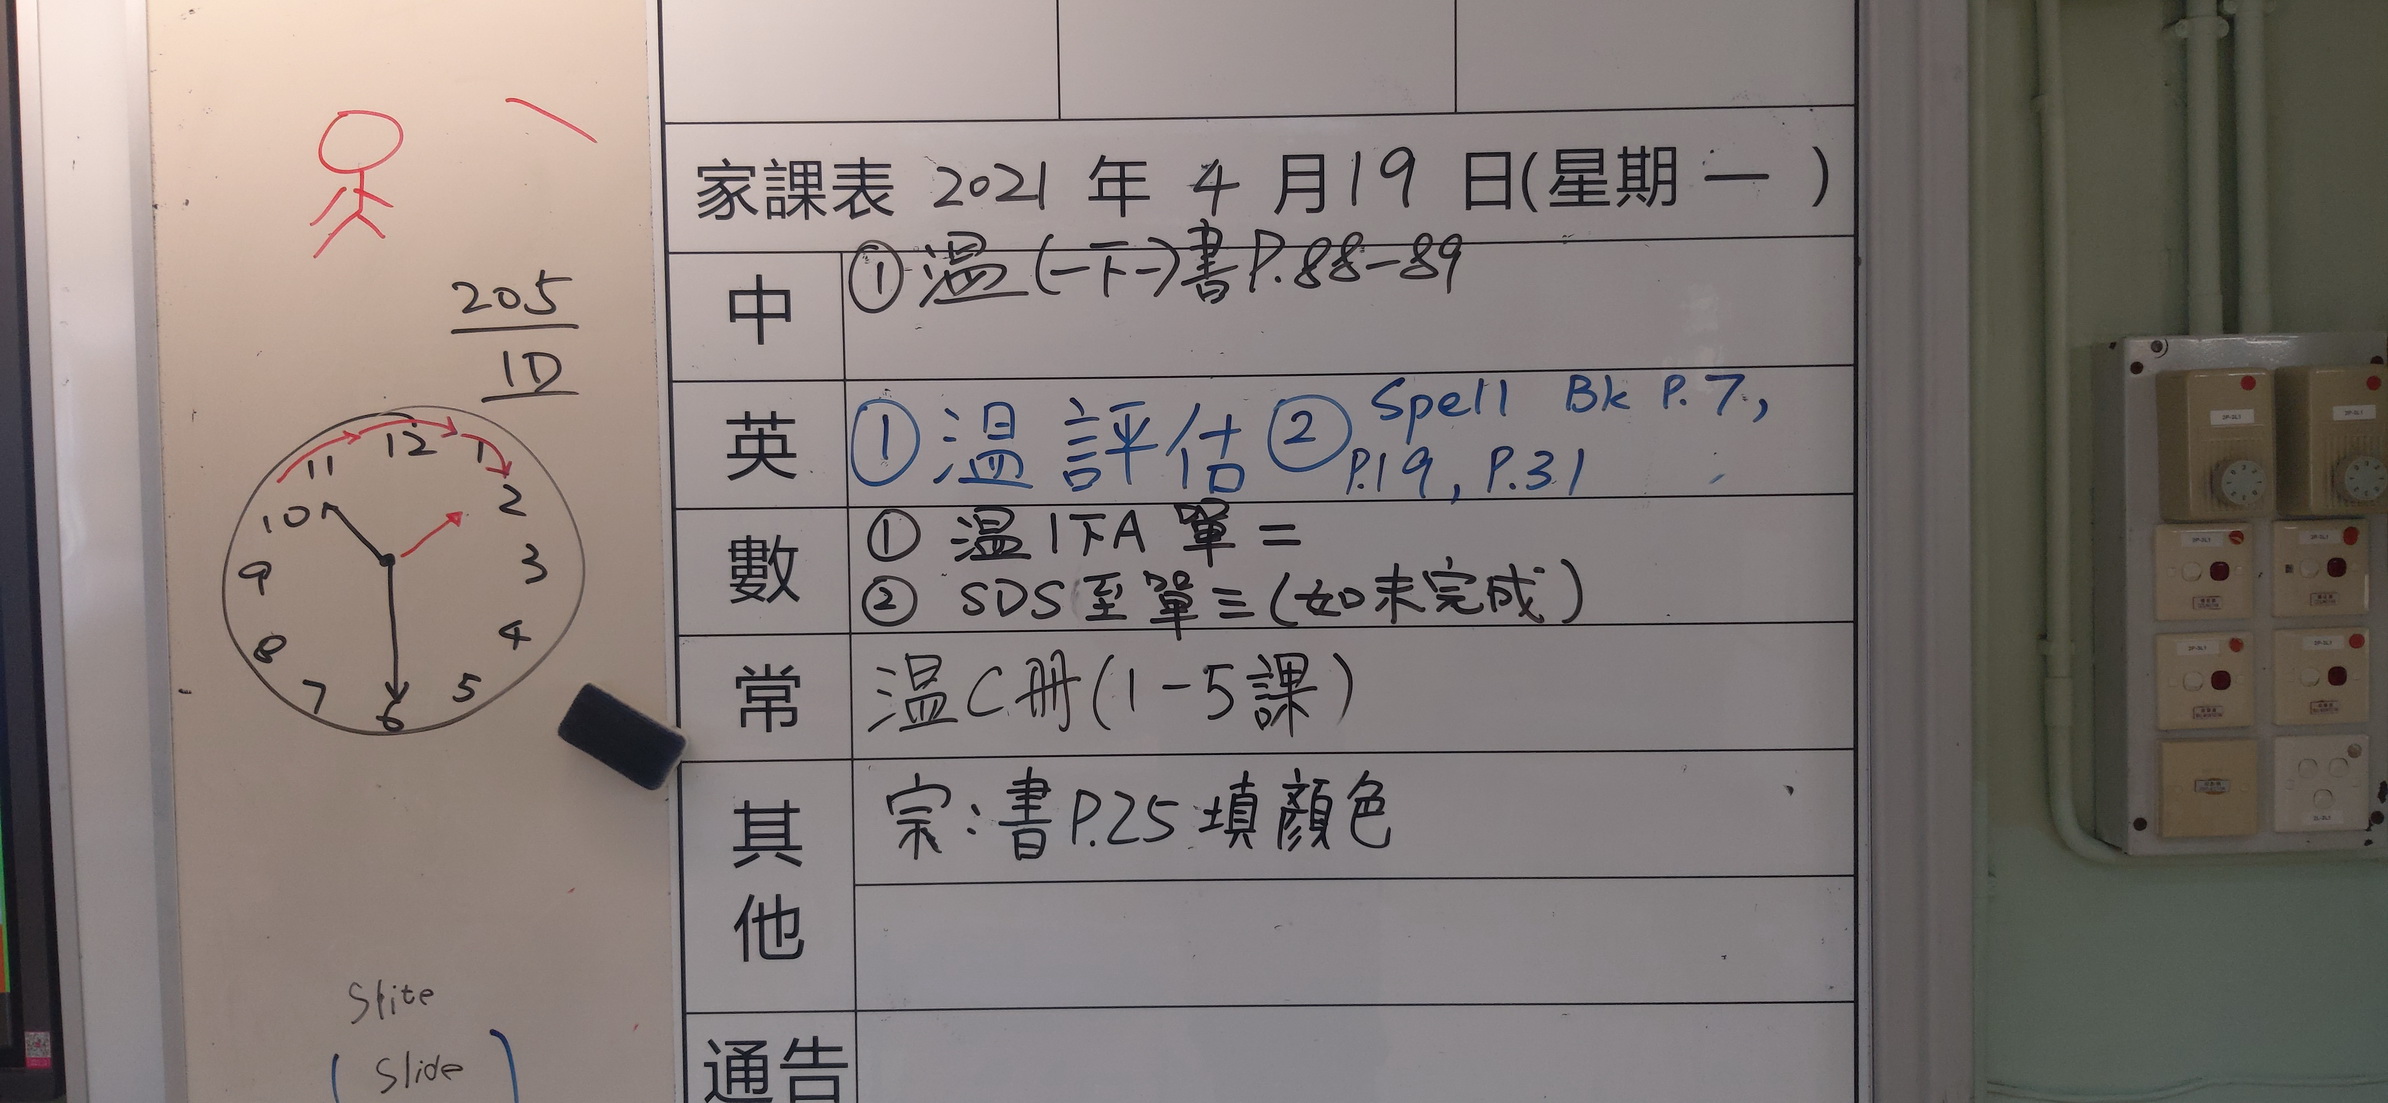 205
1D
11
12
1
10
2
9
3
8
4
7
5
6
Slite
Slide
家課表 2021 年 4 月 19 日(星期 一 )
中
① 溫(一下一)書P.88-89
英
① 溫評估 ② Spell Bk P.7,
P.19, P.31
數
① 溫1下A 單二
② SDS至單三(如未完成)
常
溫C冊(1-5課)
其
他
宗:書P.25填顏色
通告